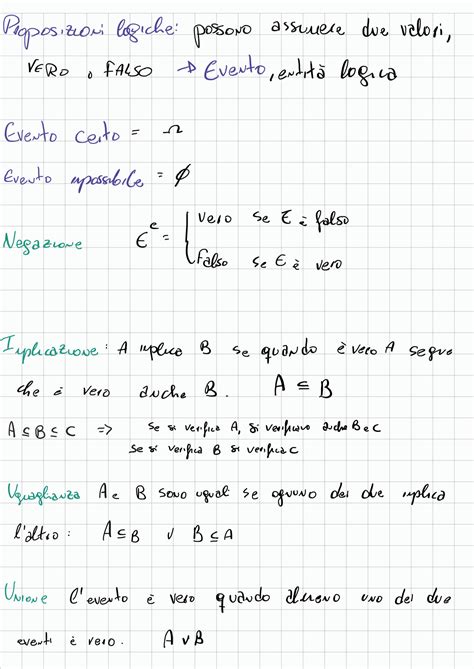 Proposizioni logiche: possono assumere due valori,
VERO o FALSO → Evento, entità logica
Evento certo = Ω
Evento impossibile = ∅
Negazione E^c = { vero se E è falso
falso se E è vero
Implicazione: A implica B se quando è vero A segue
che è vero anche B. A ⊆ B
A ⊆ B ⊆ C => se si verifica A, si verificano anche B e C
se si verifica B si verifica C
Uguaglianza A e B sono uguali se ognuno dei due implica
l'altro: A ⊆ B ∨ B ⊆ A
Unione l'evento è vero quando almeno uno dei due
eventi è vero. A ∨ B